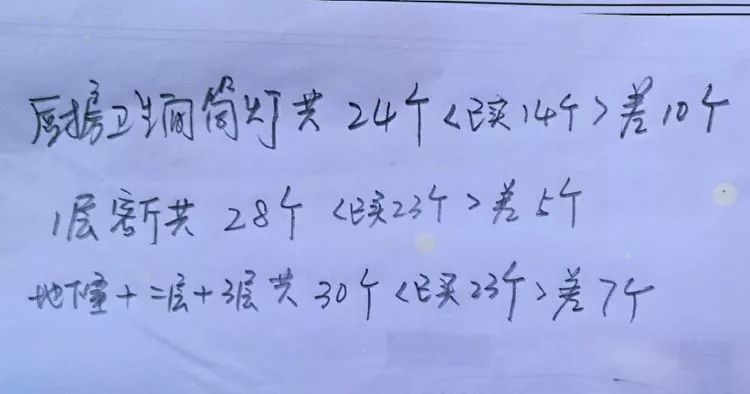 厨房卫生间筒灯共 24个<已买14个>差10个
1层客厅共 28个 <已买23个>差5个
地下室+二层+3层共 30个<已买23个>差7个